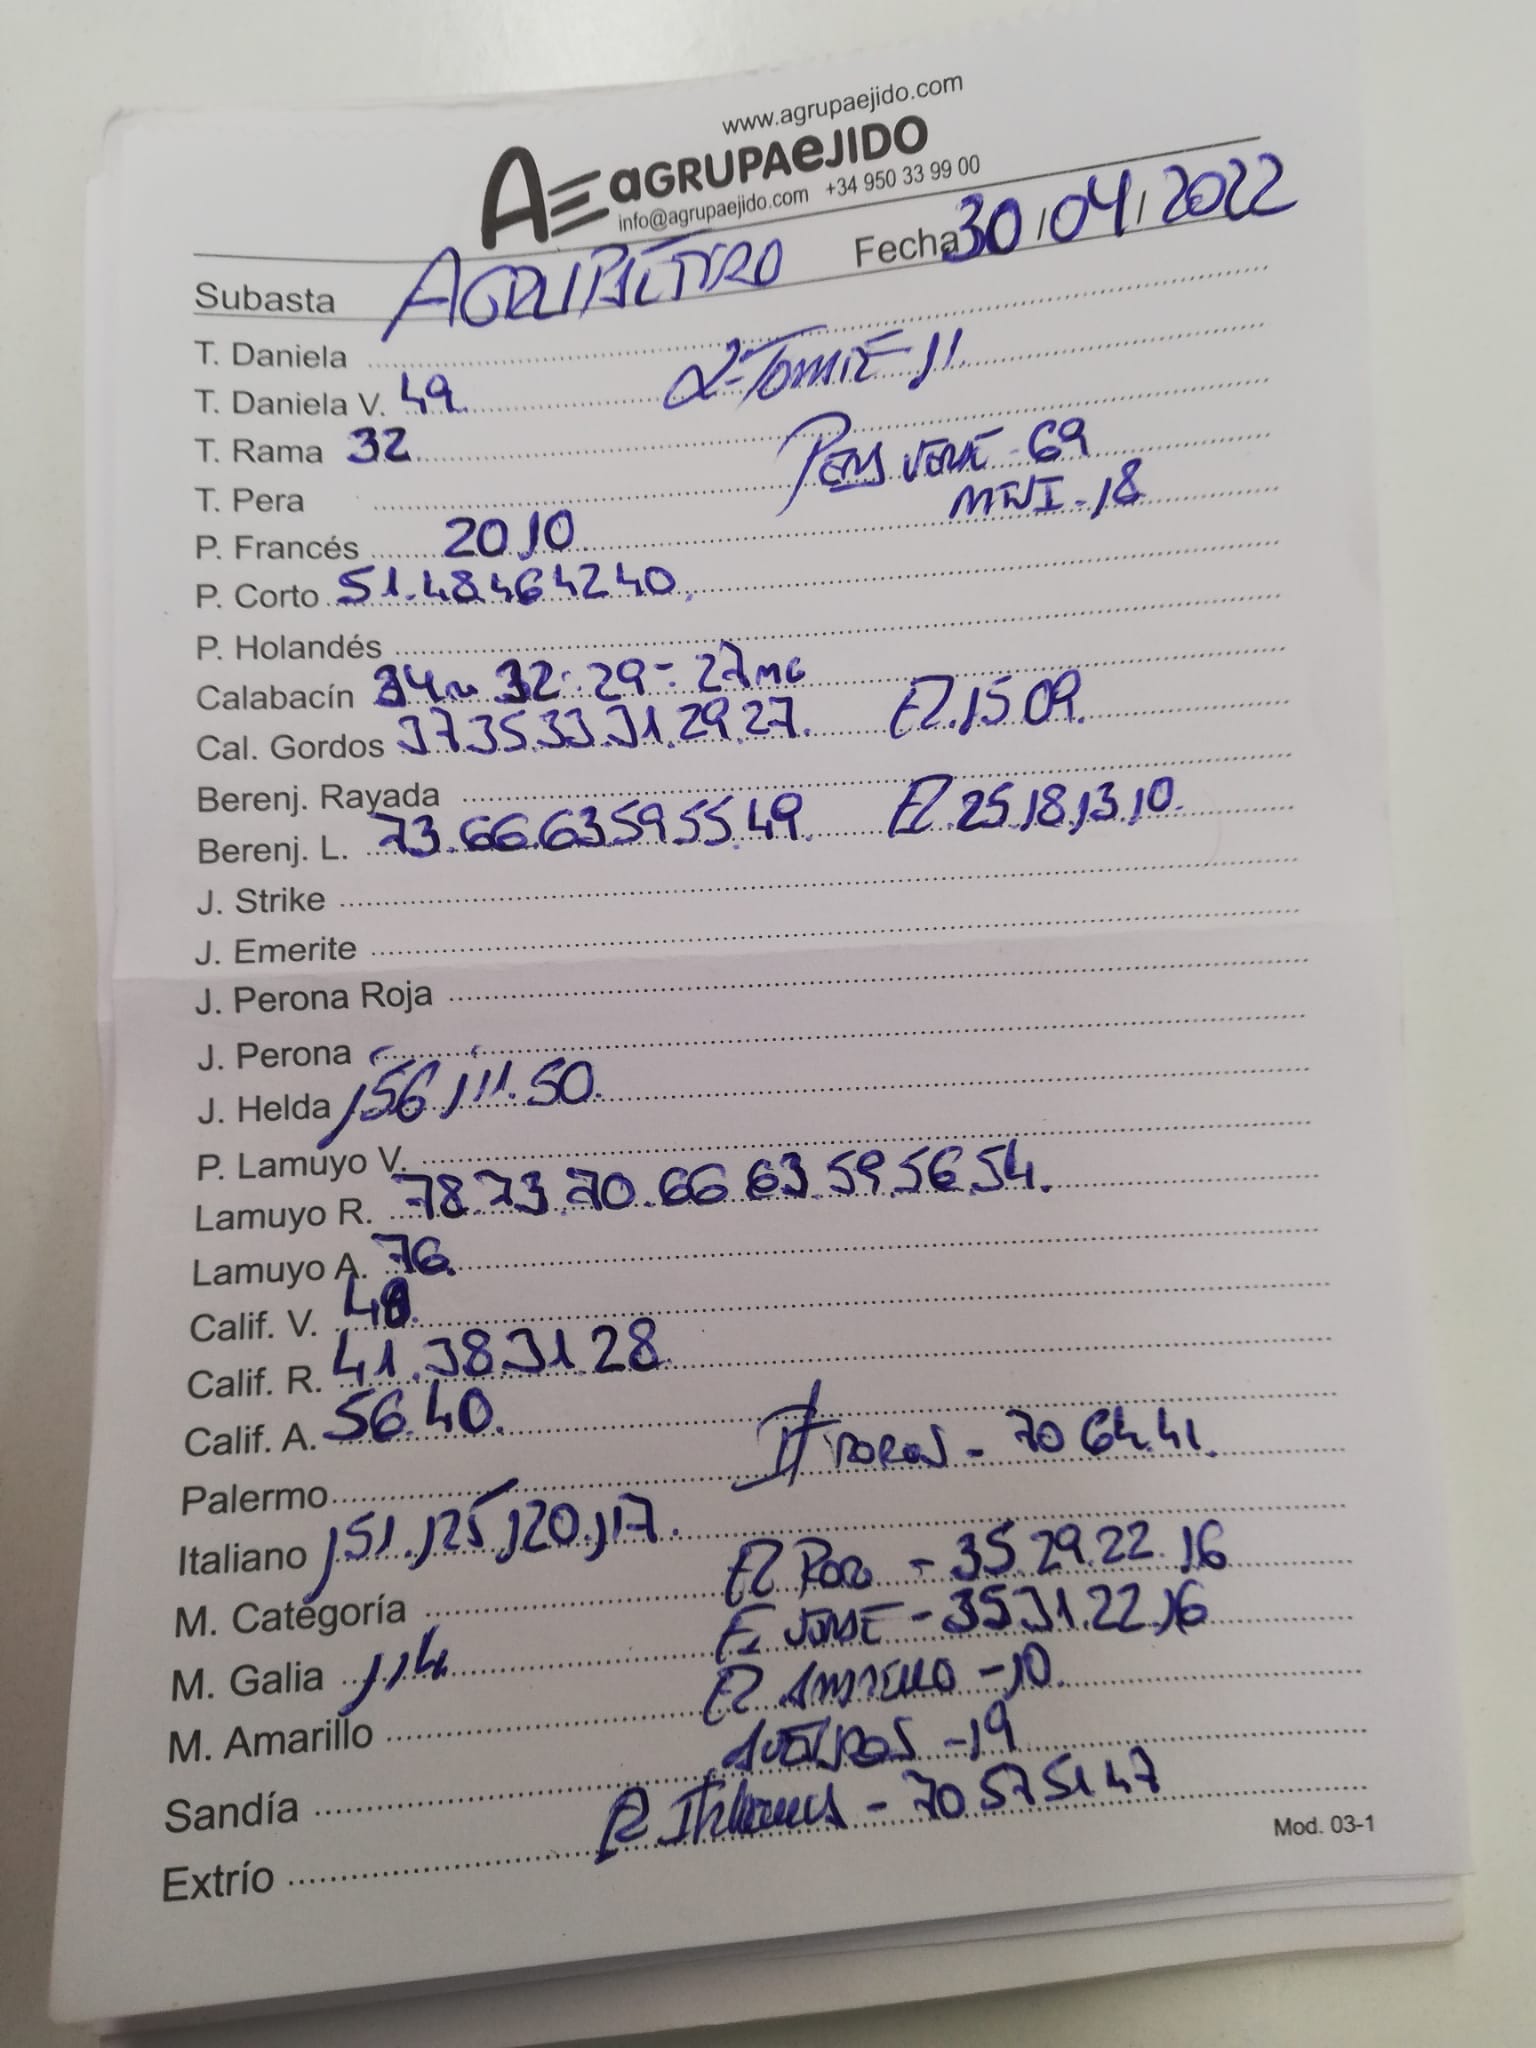 www.agrupaejido.com
AE aGRUPAeJIDO
info@agrupaejido.com +34 950 33 99 00
Subasta AGRUPAEJIDO Fecha 30/04/2022
T. Daniela
T. Daniela V. 49
T. Rama 32
T. Pera
69
MINI - 18
P. Francés 20,10.
P. Corto 51.48.46 42 40.
P. Holandés
Calabacín 34 32 - 29 - 27
Cal. Gordos 37 35.33.31.29.27. EZ. 15 09.
Berenj. Rayada
Berenj. L. 73.66.63 59 55.49. EZ 25,18,13,10.
J. Strike
J. Emerite
J. Perona Roja
J. Perona
J. Helda 156 111.50.
P. Lamuyo V.
Lamuyo R. 78.73.70.66 63.59.56.54.
Lamuyo A. 76.
Calif. V.
Calif. R. 41.38 31.28.
Calif. A. 56.40.
- 70 64.41.
Palermo
Italiano 151.125 120.117.
EZ - 35.29.22.16
M. Categoría
- 35 31.22.16
M. Galia 114
EZ AMARILLO - 10.
M. Amarillo
- 19
Sandía
- 70.57 51 47
Extrío
Mod. 03-1